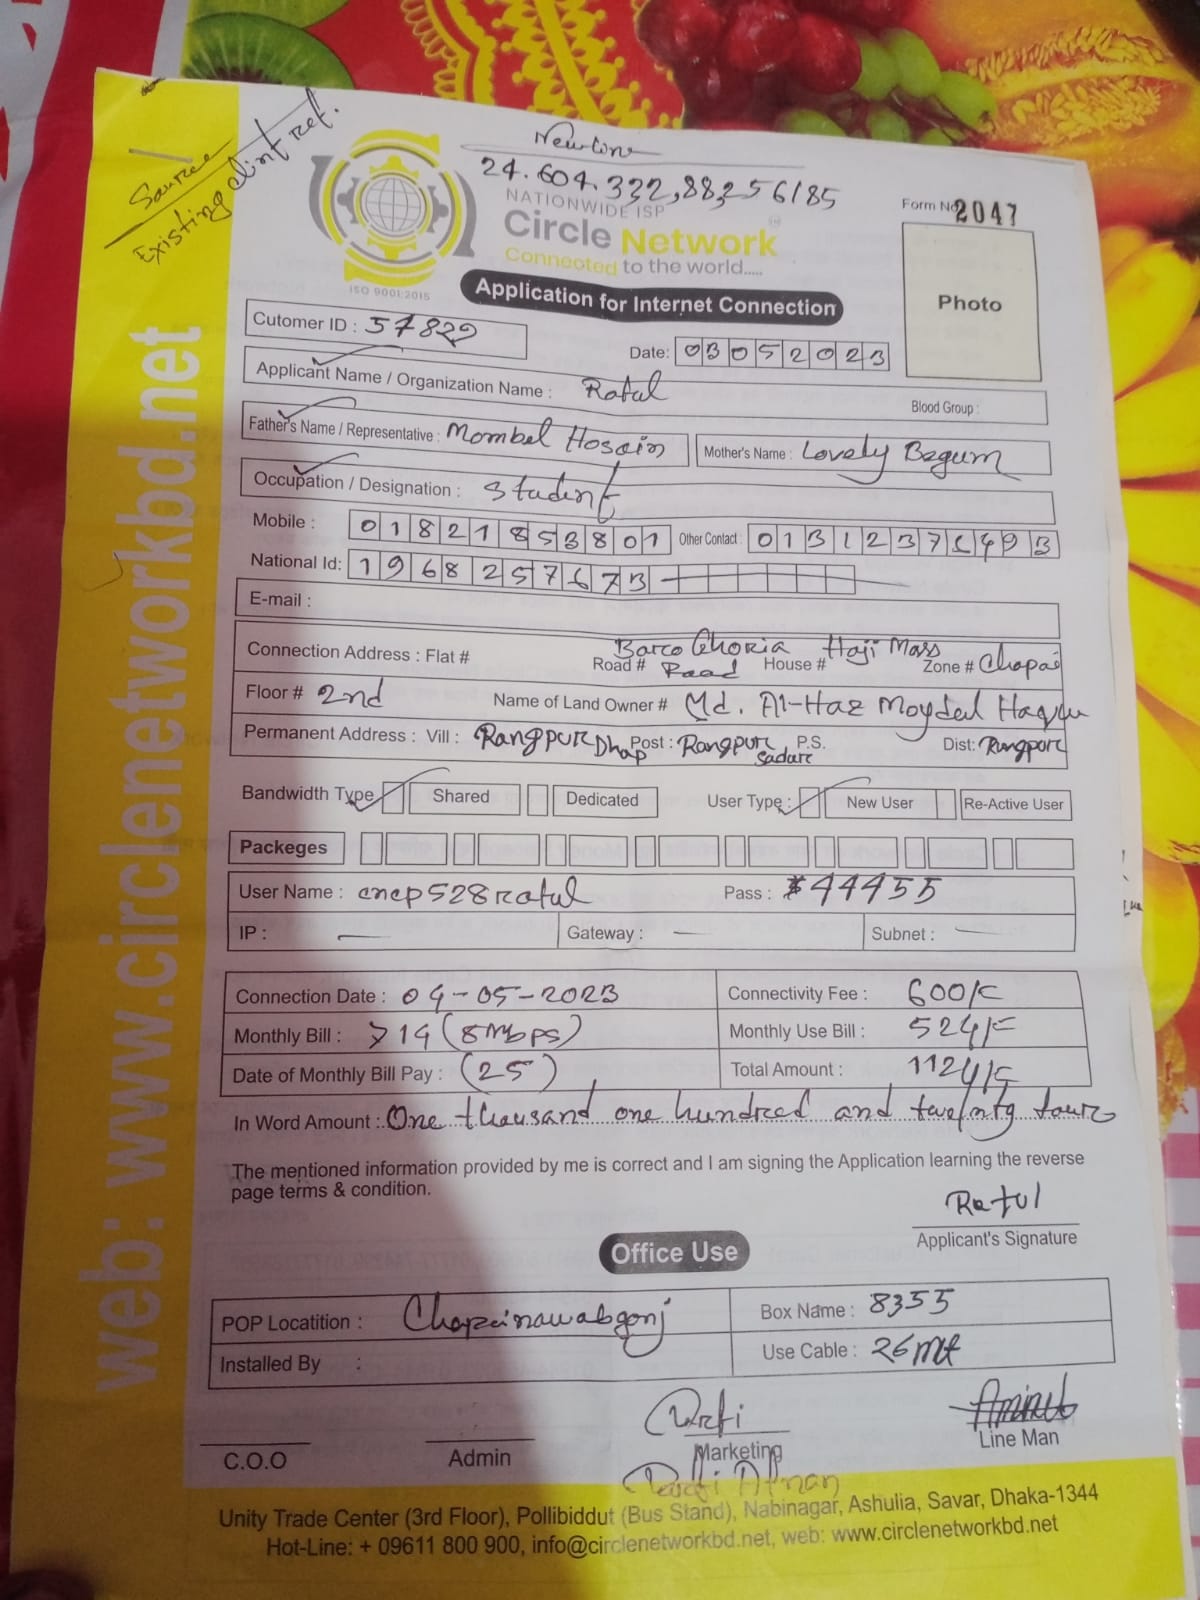 Source
Existing clint ref.
Newtone
24.604.332,88,256185
NATIONWIDE ISP
Circle Network
Connected to the world.....
ISO 9001:2015
Form No 2047
Photo
Application for Internet Connection
Cutomer ID : 57822
Date: 03052023
Applicant Name / Organization Name : Ratul
Blood Group :
Father's Name / Representative : Mombel Hosain
Mother's Name : Lovely Begum
Occupation / Designation : Student
Mobile : 01821853801 Other Contact :
National Id: 1968257673
E-mail :
Connection Address : Flat # Road # Road House # Haji Zone # Chapai
Floor # 2nd Name of Land Owner # Md. Al-Haz
Permanent Address : Vill : Rangpur Dhap Post : Rangpur Sadar P.S. Dist: Rangpur
Bandwidth Type Shared Dedicated User Type : New User Re-Active User
Packeges
User Name : cncp528ratul Pass : 44455
IP : — Gateway : — Subnet : —
Connection Date : 04-05-2023 Connectivity Fee : 600/=
Monthly Bill : 714 (8mbps) Monthly Use Bill : 524/=
Date of Monthly Bill Pay : (25) Total Amount : 1124/=
In Word Amount : One thousand one hundred and twelnty four
The mentioned information provided by me is correct and I am signing the Application learning the reverse
page terms & condition.
Ratul
Applicant's Signature
Office Use
POP Locatition : Chapainawabgonj Box Name : 8355
Installed By : Use Cable : 26 Mt
C.O.O Admin Marketing Line Man
Unity Trade Center (3rd Floor), Pollibiddut (Bus Stand), Nabinagar, Ashulia, Savar, Dhaka-1344
Hot-Line: + 09611 800 900, info@circlenetworkbd.net, web: www.circlenetworkbd.net
web: www.circlenetworkbd.net